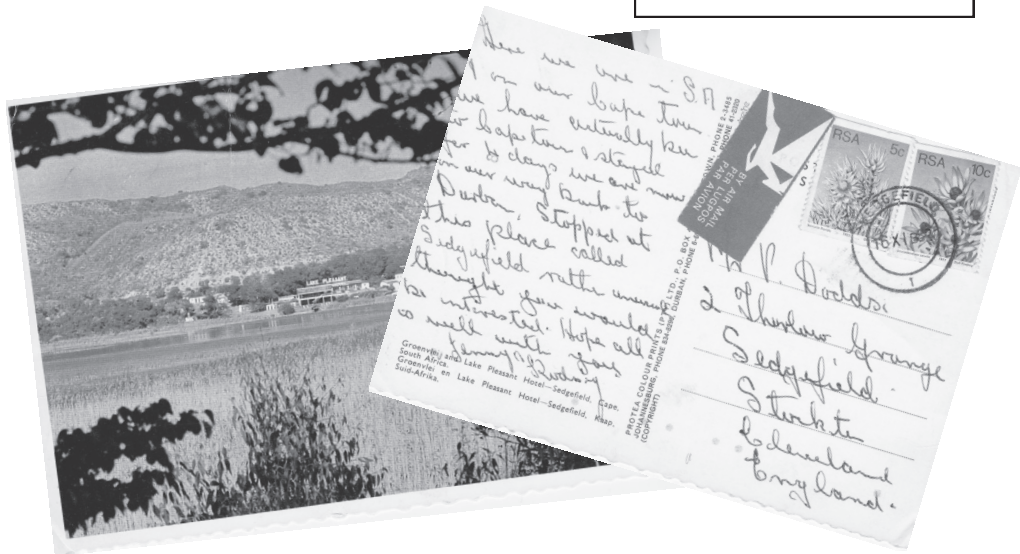 LAKE PLEASANT
Here we are in S.A
on our Cape Town
we have actually been
Capetown & stayed
for days we are now
on our way back to
Durban. Stopped at
this place called
Sedgefield rather
thought you would
be interested. Hope all
is well with you
Jenny & Rodney
Groenvlei and Lake Pleasant Hotel—Sedgefield, Cape,
South Africa.
Groenvlei en Lake Pleasant Hotel—Sedgefield, Kaap,
Suid-Afrika.
PROTEA COLOUR PRINTS (PTY) LTD., P.O. BOX
JOHANNESBURG, PHONE DURBAN, PHONE
(COPYRIGHT)
BY AIR MAIL
PER LUGPOS
PAR AVION
RSA 5c
RSA 10c
P. Dodds.
2 Thorlow Grange
Sedgefield.
Cleveland
England.